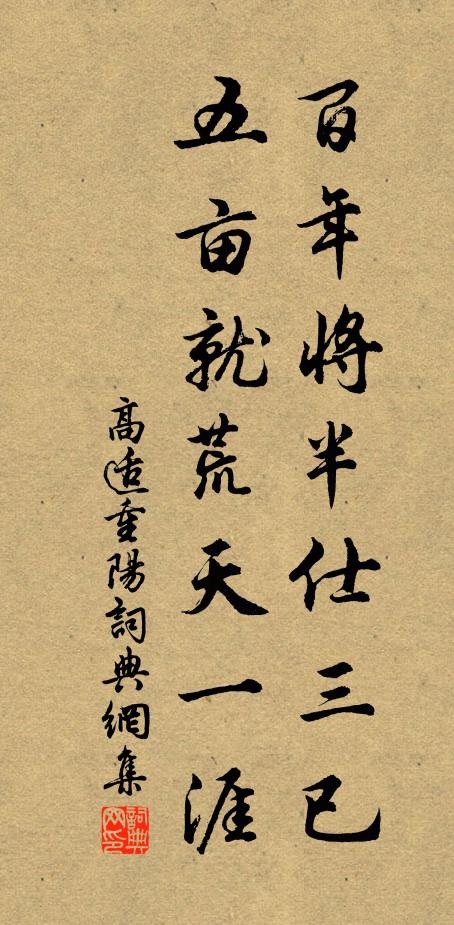 百年將半仕三已
五亩就荒天一涯
高适重陽詞典網集
詞典網印